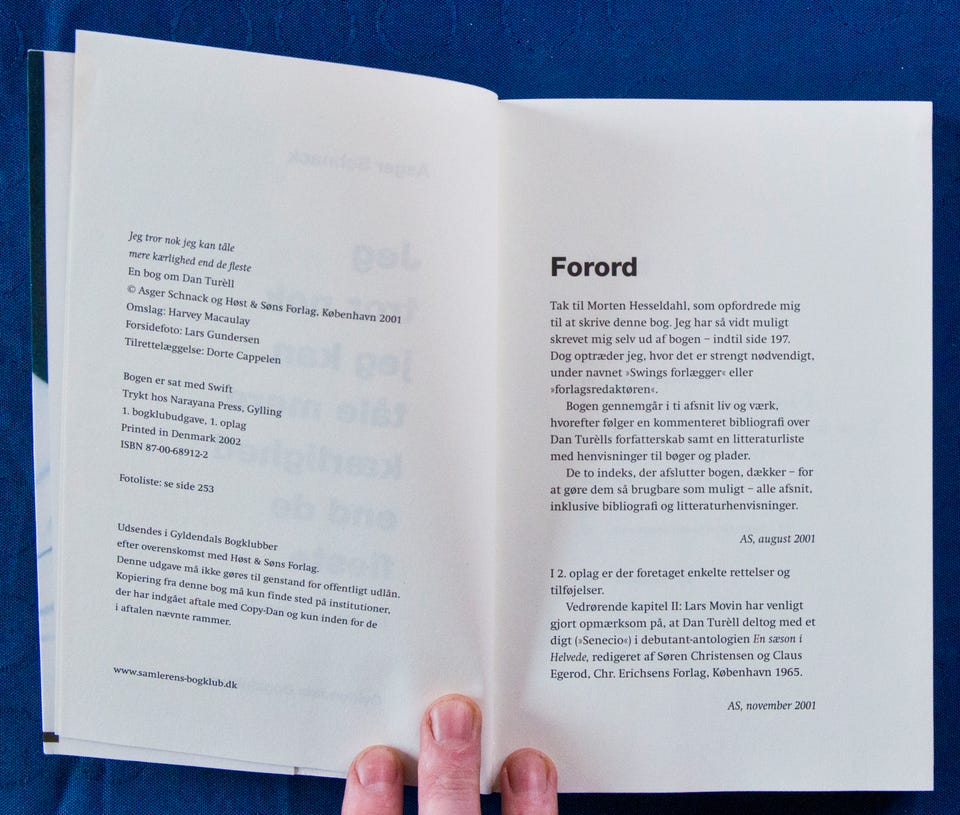 Jeg tror nok jeg kan tåle
mere kærlighed end de fleste
En bog om Dan Turèll
© Asger Schnack og Høst & Søns Forlag, København 2001
Omslag: Harvey Macaulay
Forsidefoto: Lars Gundersen
Tilrettelæggelse: Dorte Cappelen
Bogen er sat med Swift
Trykt hos Narayana Press, Gylling
1. bogklubudgave, 1. oplag
Printed in Denmark 2002
ISBN 87-00-68912-2
Fotoliste: se side 253
Udsendes i Gyldendals Bogklubber
efter overenskomst med Høst & Søns Forlag.
Denne udgave må ikke gøres til genstand for offentligt udlån.
Kopiering fra denne bog må kun finde sted på institutioner,
der har indgået aftale med Copy-Dan og kun inden for de
i aftalen nævnte rammer.
www.samlerens-bogklub.dk
Forord
Tak til Morten Hesseldahl, som opfordrede mig
til at skrive denne bog. Jeg har så vidt muligt
skrevet mig selv ud af bogen – indtil side 197.
Dog optræder jeg, hvor det er strengt nødvendigt,
under navnet »Swings forlægger« eller
»forlagsredaktøren«.
Bogen gennemgår i ti afsnit liv og værk,
hvorefter følger en kommenteret bibliografi over
Dan Turèlls forfatterskab samt en litteraturliste
med henvisninger til bøger og plader.
De to indeks, der afslutter bogen, dækker – for
at gøre dem så brugbare som muligt – alle afsnit,
inklusive bibliografi og litteraturhenvisninger.
AS, august 2001
I 2. oplag er der foretaget enkelte rettelser og
tilføjelser.
Vedrørende kapitel II: Lars Movin har venligt
gjort opmærksom på, at Dan Turèll deltog med et
digt (»Senecio«) i debutant-antologien En sæson i
Helvede, redigeret af Søren Christensen og Claus
Egerod, Chr. Erichsens Forlag, København 1965.
AS, november 2001